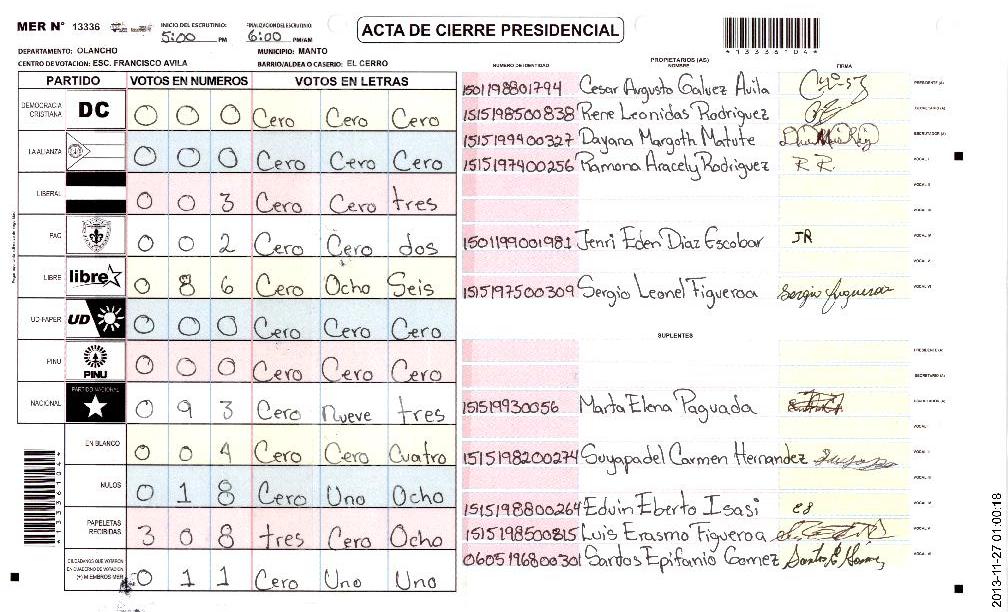 MER N° 13336 INICIO DEL ESCRUTINIO: 5:00 PM FINALIZACION DEL ESCRUTINIO: 6:00 PM/AM
ACTA DE CIERRE PRESIDENCIAL
*1333610 4*
DEPARTAMENTO: OLANCHO MUNICIPIO: MANTO
CENTRO DE VOTACION: ESC. FRANCISCO AVILA BARRIO/ALDEA O CASERIO: EL CERRO
PARTIDO VOTOS EN NUMEROS VOTOS EN LETRAS
DEMOCRACIA CRISTIANA DC 0 0 0 Cero Cero Cero
LA ALIANZA 0 0 0 Cero Cero Cero
LIBERAL 0 0 3 Cero Cero tres
PAC 0 0 2 Cero Cero dos
LIBRE libre 0 8 6 Cero Ocho Seis
UD-FAPER UD 0 0 0 Cero Cero Cero
PINU PINU 0 0 0 Cero Cero Cero
NACIONAL PARTIDO NACIONAL 0 9 3 Cero nueve tres
EN BLANCO 0 0 4 Cero Cero Cuatro
NULOS 0 1 8 Cero Uno Ocho
PAPELETAS RECIBIDAS 3 0 8 tres Cero Ocho
CIUDADANOS QUE VOTARON EN CUADERNO DE VOTACION (+) MIEMBROS MER 0 1 1 Cero Uno Uno
PROPIETARIOS (AS)
NUMERO DE IDENTIDAD NOMBRE FIRMA
1501198801794 Cesar Augusto Galvez Avila PRESIDENTE (A)
1515198500838 Rene Leonidas Rodriguez SECRETARIO (A)
1515199400327 Dayana Margoth Matute ESCRUTADOR (A)
1515197400256 Ramona Aracely Rodriguez R R. VOCAL I
VOCAL II
VOCAL III
1501199001981 Jenri Eden Diaz Escobar JR VOCAL IV
VOCAL V
1515197500309 Sergio Leonel Figueroa Sergio Figueroa VOCAL VI
SUPLENTES
PRESIDENTE (A)
SECRETARIO (A)
151519930056 Marta Elena Paguada ESCRUTADOR (A)
VOCAL I
1515198200274 Suyapa del Carmen Hernandez VOCAL II
1515198800264 Eduin Eberto Isasi EB VOCAL IV
1515198500815 Luis Erasmo Figueroa VOCAL V
0605196800301 Santos Epifanio Gomez Santos E Gomez VOCAL VI
2013-11-27 01:00:18